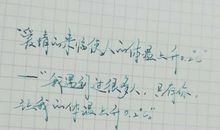 "爱情的来临使人的体温上升0.2℃"
—"我遇到过很多人,只有你,
让我的体温上升0.2℃"